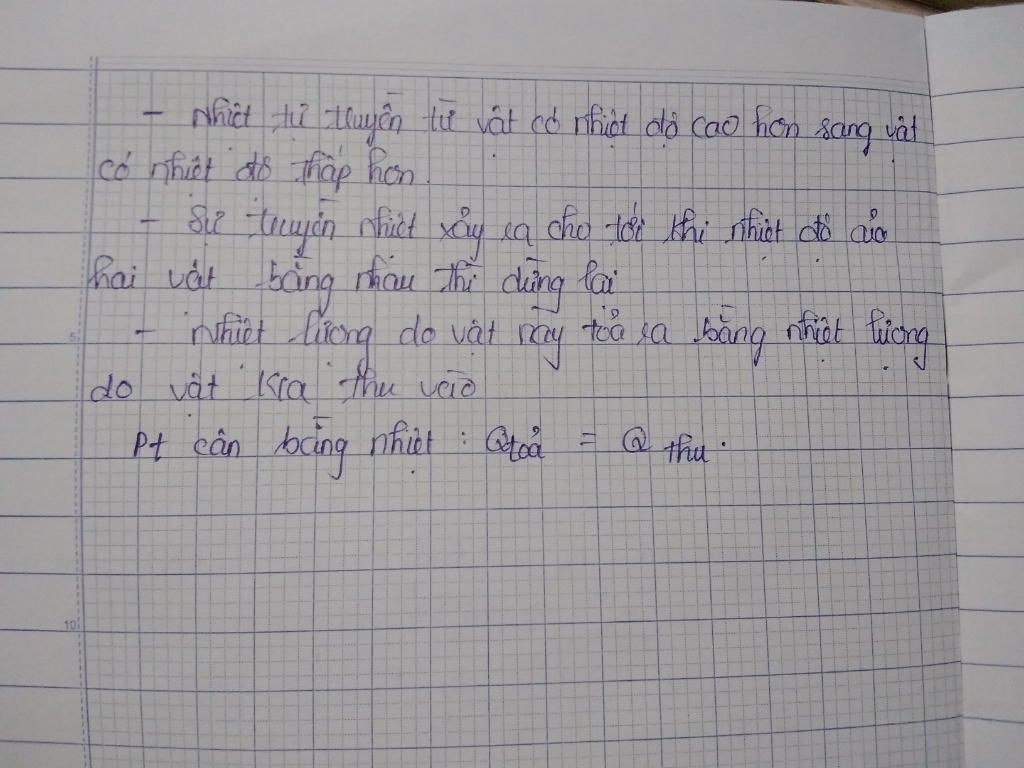 - Nhiệt tự truyền từ vật có nhiệt độ cao hơn sang vật
có nhiệt độ thấp hơn.
- Sự truyền nhiệt xảy ra cho tới khi nhiệt độ của
hai vật bằng nhau thì dừng lại
- Nhiệt lượng do vật này toả ra bằng nhiệt lượng
do vật kia thu vào
Pt cân bằng nhiệt : Qtoả = Q thu.
5
10